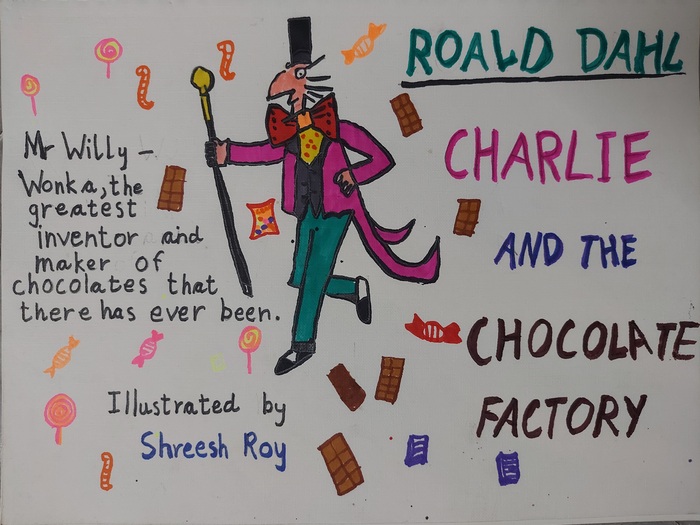 ROALD DAHL
CHARLIE
AND THE
CHOCOLATE
FACTORY
Mr Willy –
Wonka, the
greatest
inventor and
maker of
chocolates that
there has ever been.
Illustrated by
Shreesh Roy